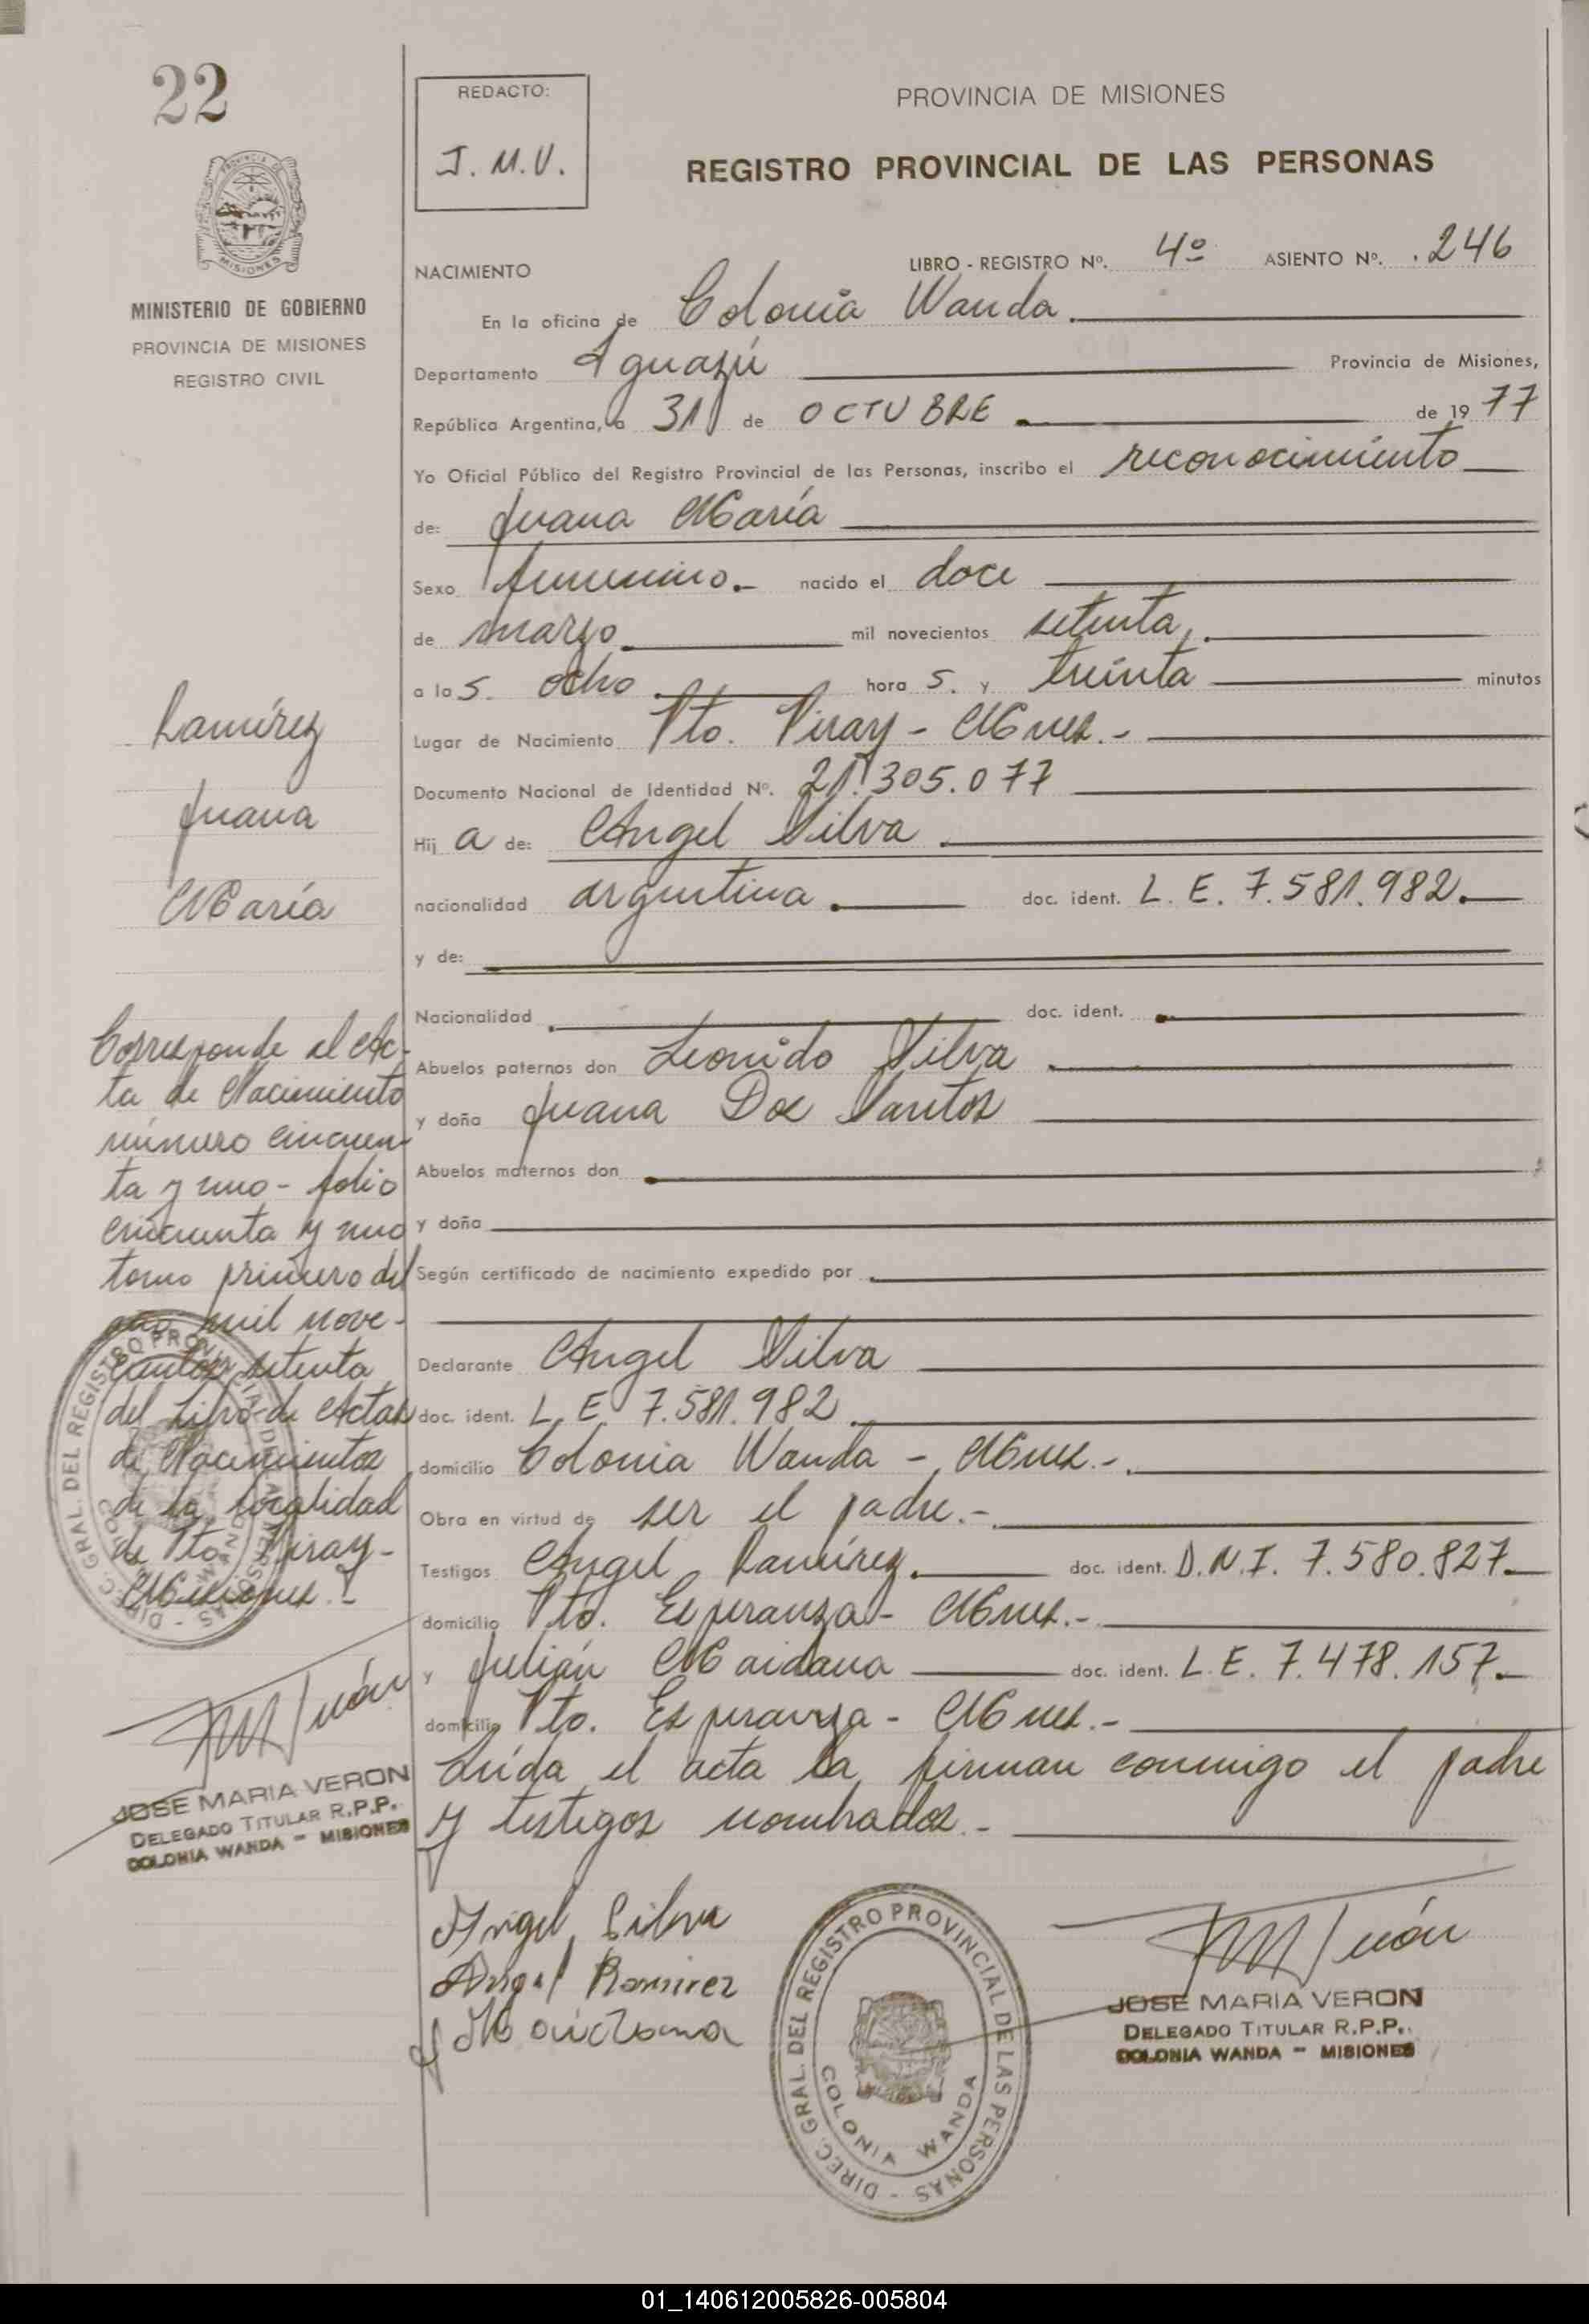 22
PROVINCIA DE
MISIONES
MINISTERIO DE GOBIERNO
PROVINCIA DE MISIONES
REGISTRO CIVIL
REDACTO:
J. M. V.
PROVINCIA DE MISIONES
REGISTRO PROVINCIAL DE LAS PERSONAS
NACIMIENTO LIBRO - REGISTRO Nº. 4º ASIENTO Nº. 246
En la oficina de Colonia Wanda.
Departamento Iguazú Provincia de Misiones,
República Argentina, a 31 de OCTUBRE de 19 77
Yo Oficial Público del Registro Provincial de las Personas, inscribo el reconocimiento
de: Juana María
Sexo femenino.- nacido el doce
de marzo mil novecientos setenta,
a las. ocho horas. y treinta minutos
Lugar de Nacimiento Pto. Piray - Mnes.-
Documento Nacional de Identidad Nº. 21.305.077
Hij a de: Angel Silva
nacionalidad argentina. doc. ident. L. E. 7.581.982.
y de:
Nacionalidad doc. ident.
Abuelos paternos don Leonido Silva
y doña Juana Dos Santos
Abuelos maternos don
y doña
Según certificado de nacimiento expedido por
Declarante Angel Silva
doc. ident. L. E. 7.581.982
domicilio Colonia Wanda - Mnes.-
Obra en virtud de ser el padre.-
Testigos Angel Ramírez. doc. ident. D.N.I. 7.580.827.
domicilio Pto. Esperanza - Mnes.-
y Julián Maidana doc. ident. L.E. 7.478.157.
domicilio Pto. Esperanza - Mnes.-
Leída el acta la firman conmigo el padre
y testigos nombrados.-
Angel Silva
Angel Ramirez
J Maidana
DIREC. GRAL. DEL REGISTRO PROVINCIAL DE LAS PERSONAS -
COLONIA WANDA
JOSE MARIA VERON
DELEGADO TITULAR R.P.P.
COLONIA WANDA - MISIONES
Ramírez
Juana
María
Corresponde al Ac-
ta de Nacimiento
número cincuen-
ta y uno - folio
cincuenta y uno
tomo primero del
año mil nove-
cientos setenta
del Libro de Actas
de Nacimientos
de la localidad
de Pto. Piray-
Misiones.-
DIREC. GRAL. DEL REGISTRO PROVINCIAL DE LAS PERSONAS -
COLONIA WANDA
JOSE MARIA VERON
DELEGADO TITULAR R.P.P.
COLONIA WANDA - MISIONES
01_140612005826-005804